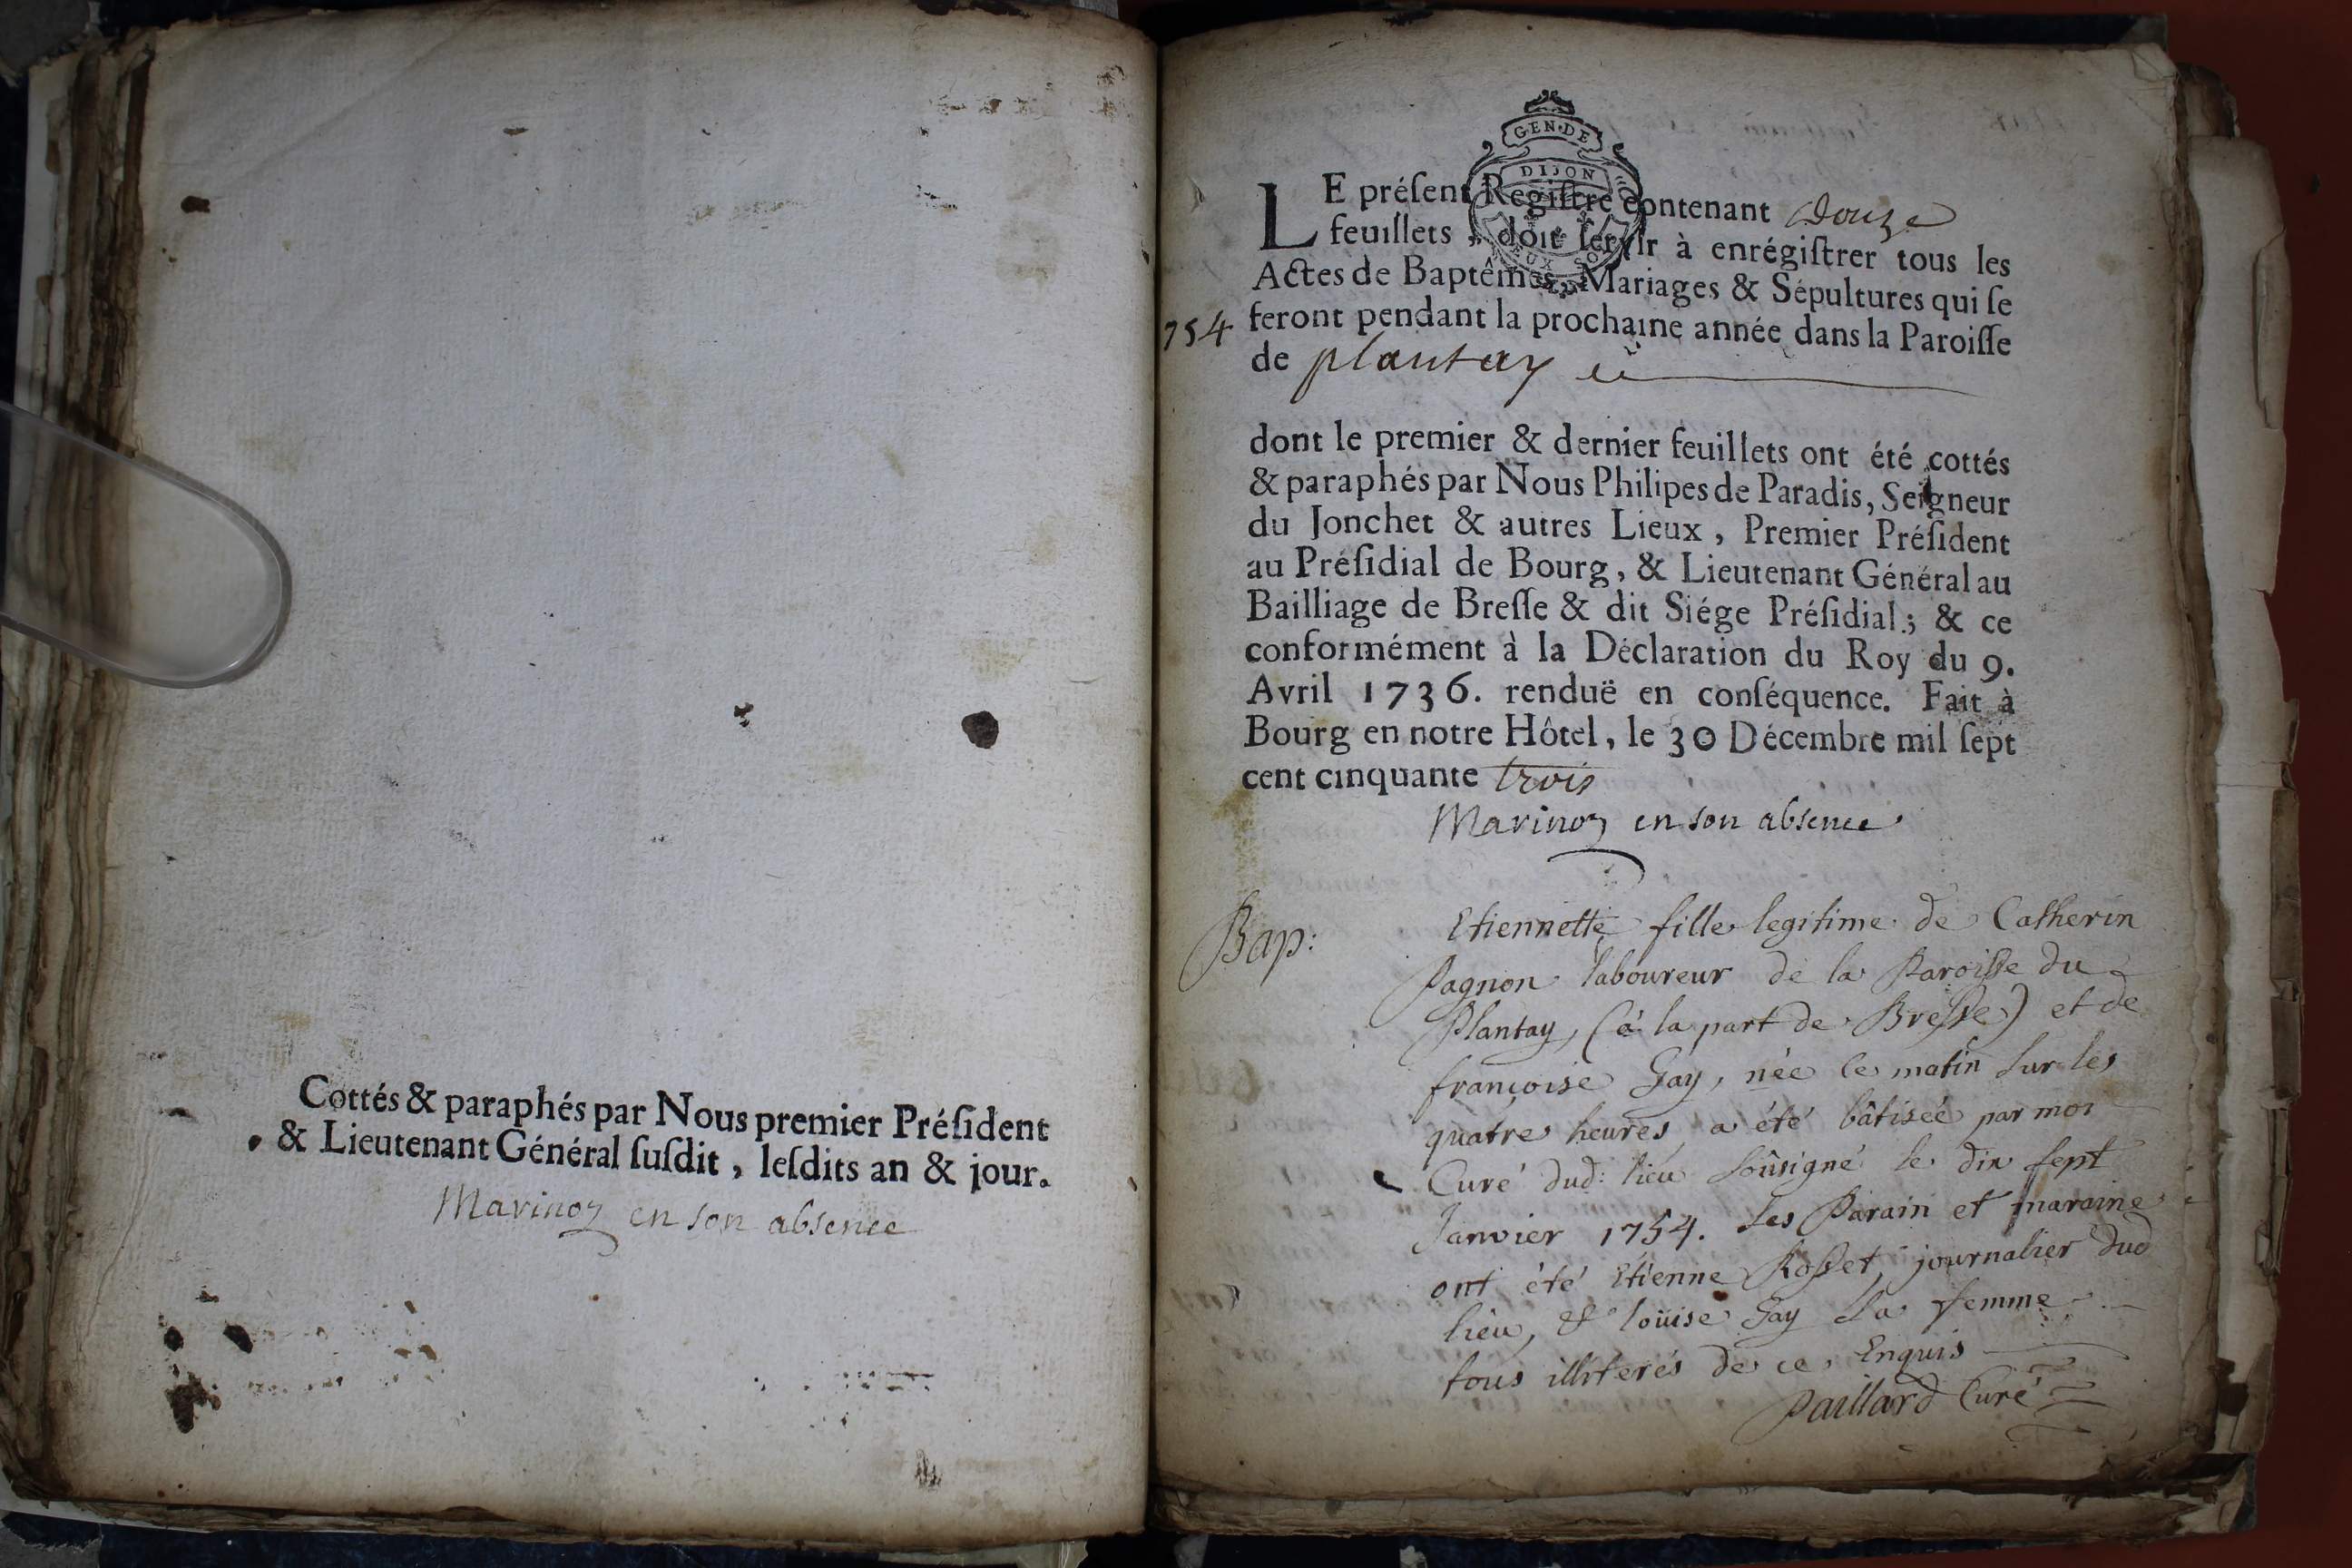 Cottés & paraphés par Nous premier Préſident
& Lieutenant Général ſuſdit, leſdits an & jour.
Marinoz en son absence
GEN·DE
DIJON
LE préſent Regiſtre contenant douze
feuillets, doit ſervir à enrégiſtrer tous les
Actes de Baptêmes, Mariages & Sépultures qui ſe
754 feront pendant la prochaine année dans la Paroiſſe
de plantay
dont le premier & dernier feuillets ont été cottés
& paraphés par Nous Philipes de Paradis, Seigneur
du Jonchet & autres Lieux, Premier Préſident
au Préſidial de Bourg, & Lieutenant Général au
Bailliage de Breſſe & dit Siége Préſidial; & ce
conformément à la Déclaration du Roy du 9.
Avril 1736. renduë en conſéquence. Fait à
Bourg en notre Hôtel, le 30 Décembre mil ſept
cent cinquante trois
Marinoz en son absence
Bap: Etiennette fille legitime de Catherin
Pagnon laboureur de la Paroiſſe du
Plantay, (à la part de Breſſe) et de
françoise Gay, née ce matin sur les
quatre heures, a été bâtiseé par moi
Curé dud: lieu soûsigné le dix sept
Janvier 1754. Les Parain et maraine
ont été Etienne Roſſet, journalier dud
lieu, & loüise Gay sa femme
tous illiterés de ce Enquis
Paillard Curé